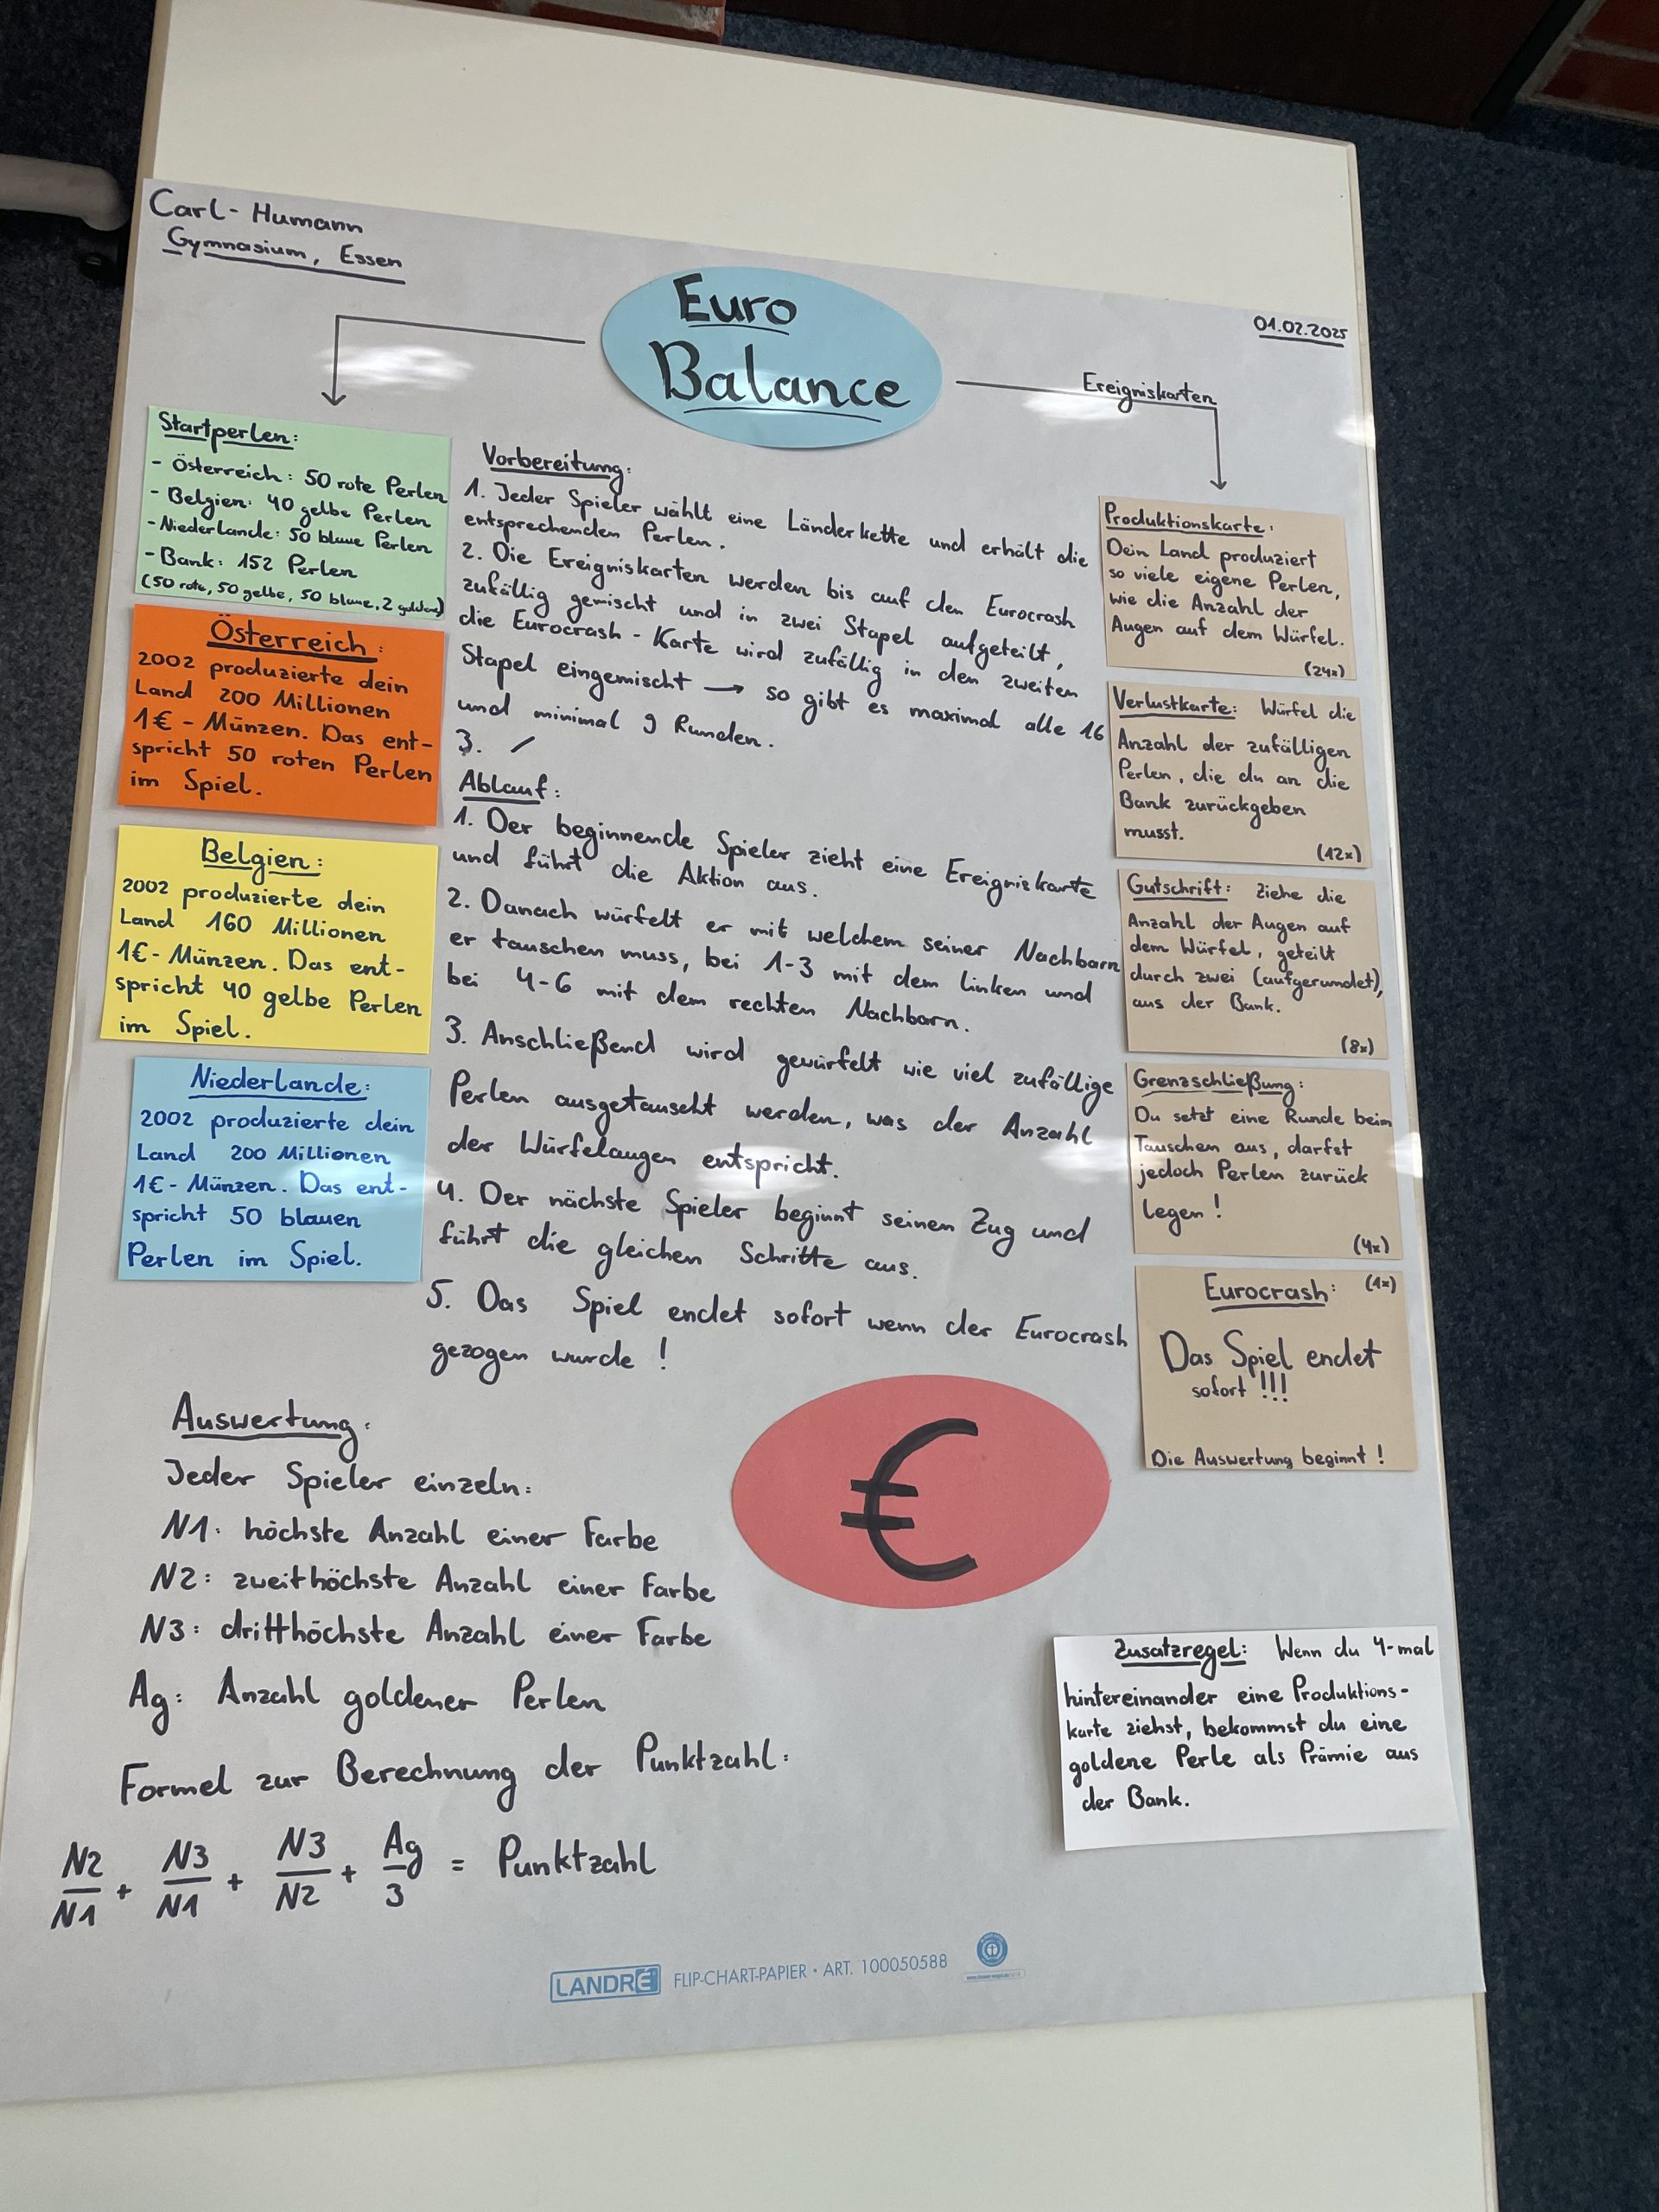 Carl-Humann
Gymnasium, Essen
Euro
Balance
01.02.2025
Ereigniskarten
Startperlen:
- Österreich: 50 rote Perlen
- Belgien: 40 gelbe Perlen
- Niederlande: 50 blaue Perlen
- Bank: 152 Perlen
(50 rote, 50 gelbe, 50 blaue, 2 goldene)
Österreich:
2002 produzierte dein
Land 200 Millionen
1€ - Münzen. Das ent-
spricht 50 roten Perlen
im Spiel.
Belgien:
2002 produzierte dein
Land 160 Millionen
1€- Münzen. Das ent-
spricht 40 gelbe Perlen
im Spiel.
Niederlande:
2002 produzierte dein
Land 200 Millionen
1€- Münzen. Das ent-
spricht 50 blauen
Perlen im Spiel.
Vorbereitung:
1. Jeder Spieler wählt eine Länderkette und erhält die
entsprechenden Perlen.
2. Die Ereigniskarten werden bis auf den Eurocrash
zufällig gemischt und in zwei Stapel aufgeteilt,
die Eurocrash - Karte wird zufällig in den zweiten
Stapel eingemischt → so gibt es maximal alle 16
und minimal 9 Runden.
3. /
Ablauf:
1. Der beginnende Spieler zieht eine Ereigniskarte
und führt die Aktion aus.
2. Danach würfelt er mit welchem seiner Nachbarn
er tauschen muss, bei 1-3 mit dem linken und
bei 4-6 mit dem rechten Nachbarn.
3. Anschließend wird gewürfelt wie viel zufällige
Perlen ausgetauscht werden, was der Anzahl
der Würfelaugen entspricht.
4. Der nächste Spieler beginnt seinen Zug und
führt die gleichen Schritte aus.
5. Das Spiel endet sofort wenn der Eurocrash
gezogen wurde!
Produktionskarte:
Dein Land produziert
so viele eigene Perlen,
wie die Anzahl der
Augen auf dem Würfel.
(24x)
Verlustkarte: Würfel die
Anzahl der zufälligen
Perlen, die du an die
Bank zurückgeben
musst.
(12x)
Gutschrift: Ziehe die
Anzahl der Augen auf
dem Würfel, geteilt
durch zwei (aufgerundet),
aus der Bank.
(8x)
Grenzschließung:
Du setzt eine Runde beim
Tauschen aus, darfst
jedoch Perlen zurück
legen!
(4x)
Eurocrash: (1x)
Das Spiel endet
sofort !!!
Die Auswertung beginnt!
Auswertung:
Jeder Spieler einzeln:
N1: höchste Anzahl einer Farbe
N2: zweithöchste Anzahl einer Farbe
N3: dritthöchste Anzahl einer Farbe
Ag: Anzahl goldener Perlen
Formel zur Berechnung der Punktzahl:
N2/N1 + N3/N1 + N3/N2 + Ag/3 = Punktzahl
€
Zusatzregel: Wenn du 4-mal
hintereinander eine Produktions-
karte ziehst, bekommst du eine
goldene Perle als Prämie aus
der Bank.
LANDRÉ FLIP-CHART-PAPIER • ART. 100050588